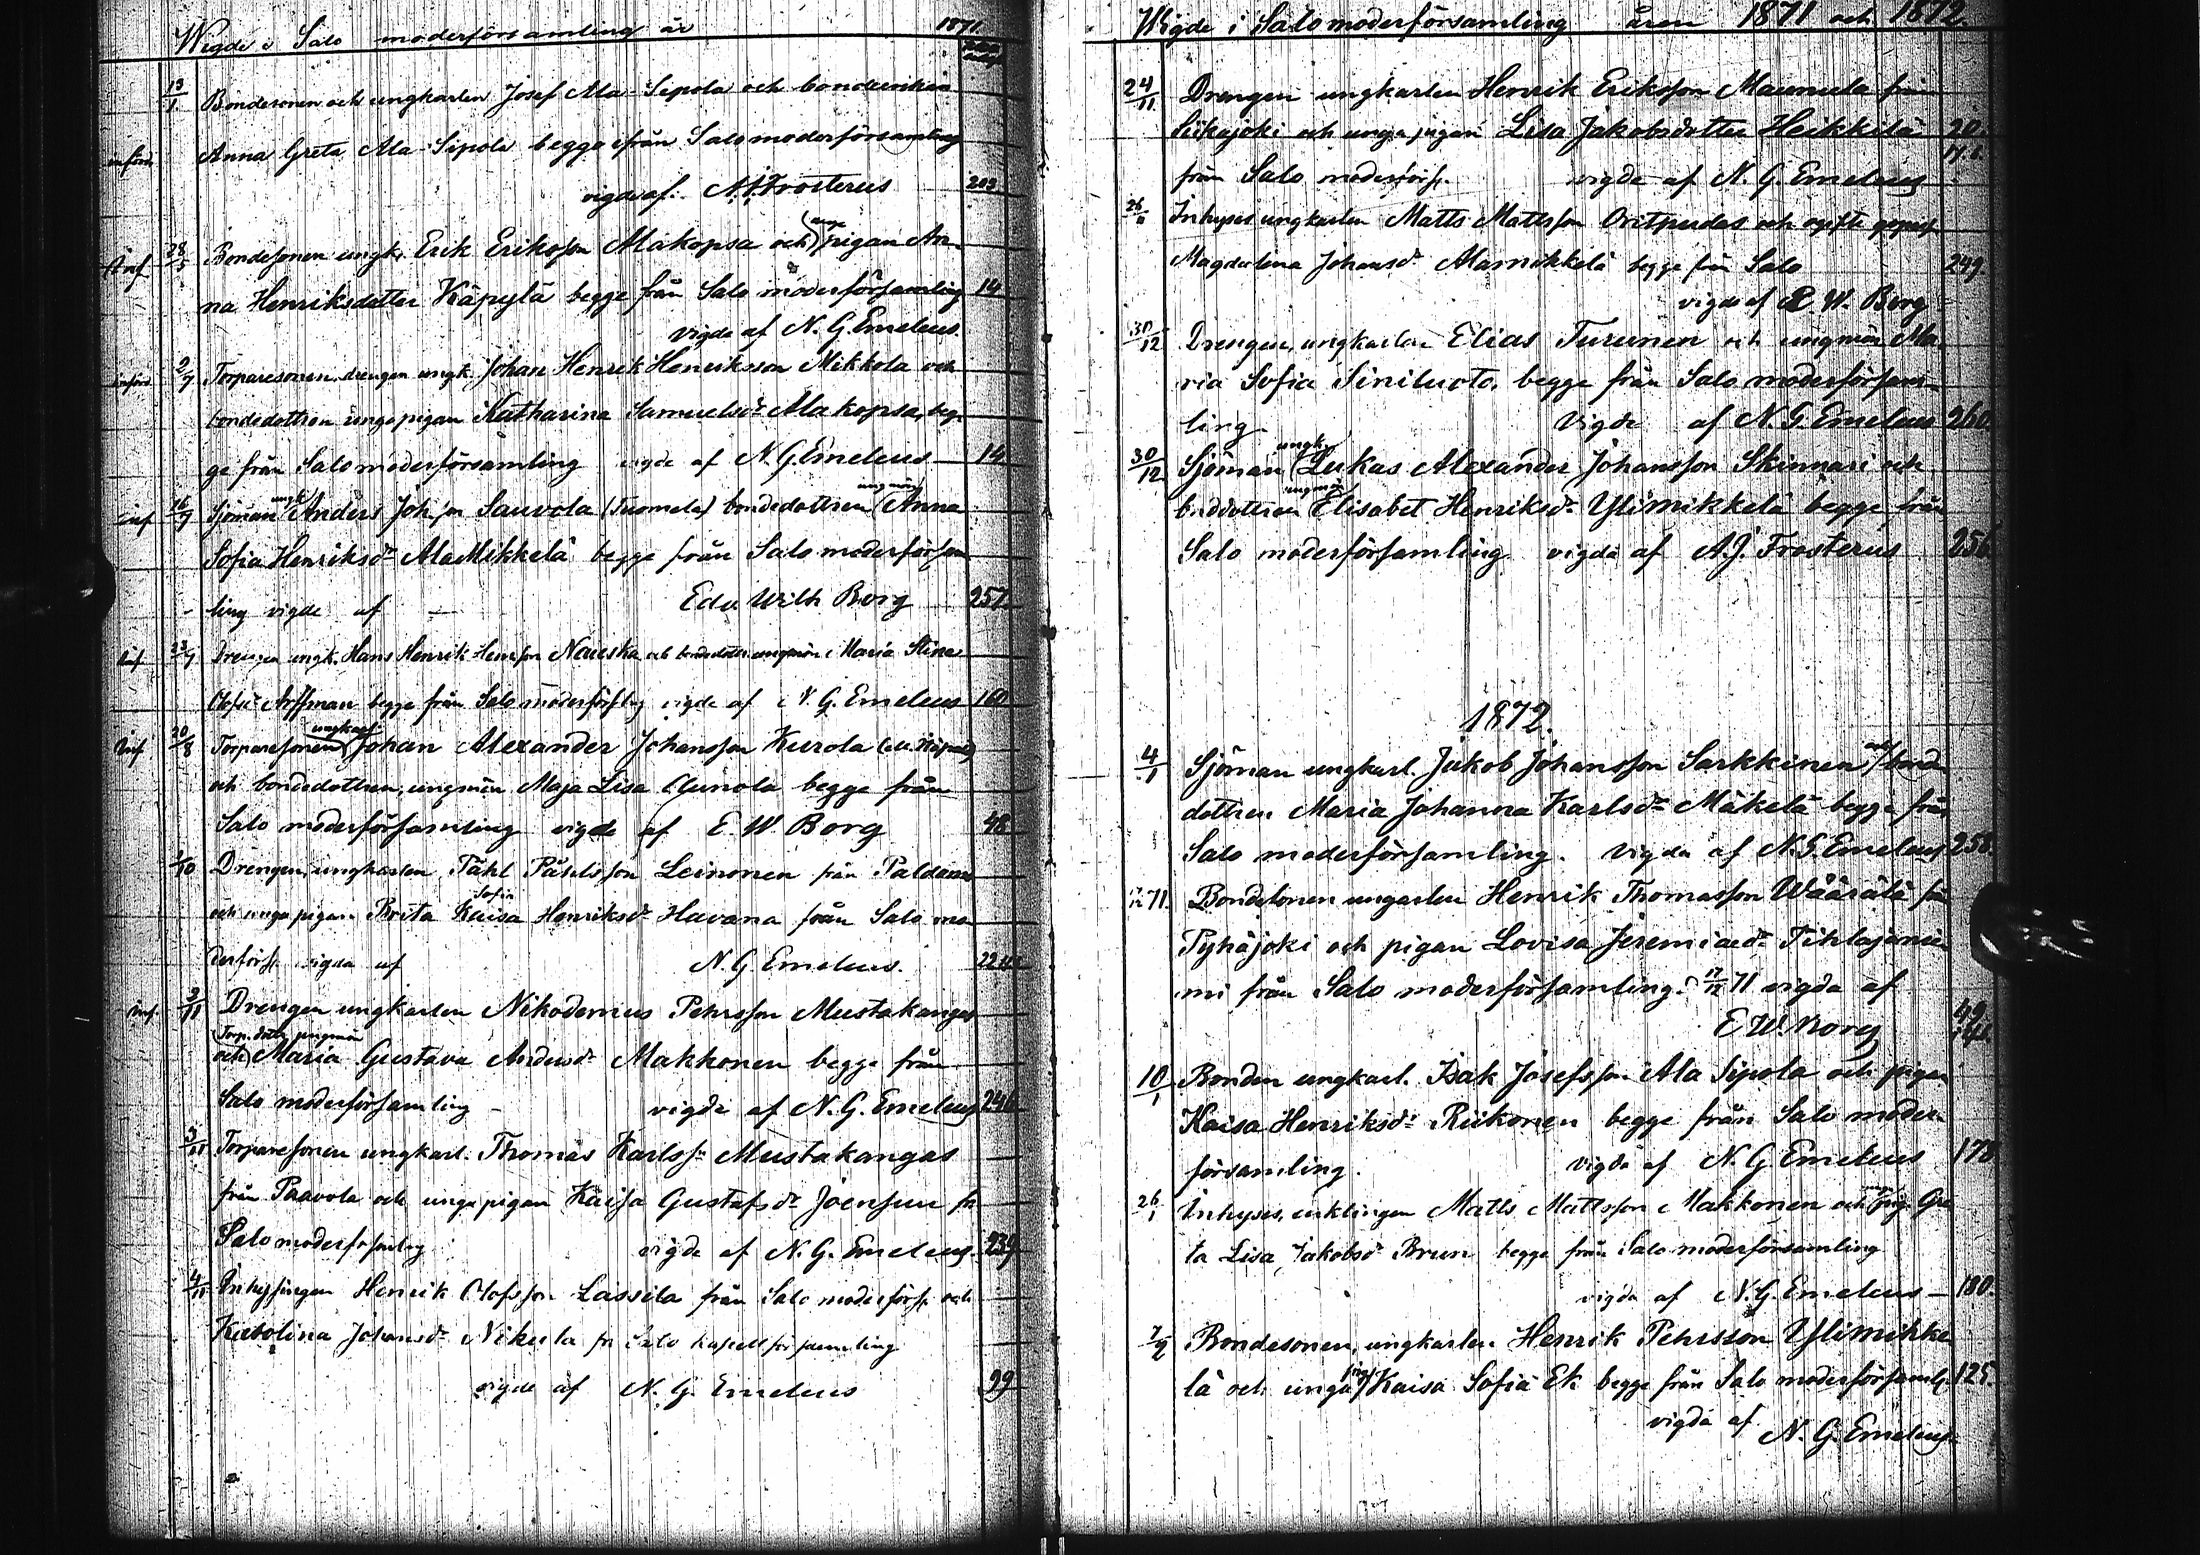 Wigde i Salo moderförsamling år 1871
13/1 Bondesonen och ungkarlen Josef Ala-Sipola och bondeenkan
Anna Greta Ala-Sipola begge ifrån Salo moderförsamling
vigde af. A.J. Frosterus 203
Inf. 28/5 Bondesonen ungk. Erik Eriksson Alakopsa och unga pigan An-
na Henriksdotter Käpylä begge från Salo moderförsamling 14
vigde af N. G. Emeleus.
införd 2/7 Torparesonen, drengen ungk. Johan Henrik Henriksson Mikkola och
bondedottren unga pigan Katharina Samuelsdr Alakopsa, beg-
ge från Salo moderförsamling vigde af N. G. Emeleus 14
inf 16/7 Sjöman ungk Anders Johsson Sauvola (Tuomela) bondedottren ungmön Anna
Sofia Henriksdr AlaMikkelä begge från Salo moderförsam
ling vigde af Edv Wilh Borg 257
Inf 23/7 Drengen ungk. Hans Henrik Henrsson Naueska och bondedottr ungmön Maria Stina
Olofsdr Arffman begge från Salo moderförslg vigde af N. G. Emeleus 160
Inf. 20/8 Torparesonen ungkarl Johan Alexander Johansson Kurola
och bondedottren, ungmön Maja Lisa Aunola begge från
Salo moderförsamling vigde af E. W Borg 48
1/10 Drengen, ungkarlen Påhl Påhlsson Leinonen från Paldamo
och unga pigan Brita Sofia Kaisa Henriksdr Havana från Salo mo
derförs. vigda af N. G. Emeleus.
Inf. 3/11 Drengen ungkarlen Nikodemus Pehrsson Mustakangas
och Torp.dott. ungmön Maria Gustava Andersdr Makkonen begge från
Salo moderförsamling vigde af N. G. Emeleus 246
3/11 Torparesonen ungkarl. Thomas Karlss. Mustakangas
från Paavola och unga pigan Kaisa Gustafsdr Joensuu fr
Salo moderförsamlg vigde af N. G. Emeleus. 239
4/11 Inhysingen Henrik Olofsson Lassila från Salo moderförs. och
Karolina Johansdr Nikula fr Salo kapellförsamling
vigde af N. G. Emeleus 99
Wigde i Salo moderförsamling åren 1871 och 1872.
24/11 Drengen ungkarlen Henrik Eriksson Maunula från
Siikajoki och unga pigan Lisa Jakobsdotter Heikkilä 20.
från Salo moderförs. vigde af N. G. Emeleus
26/11 Inhyses ungkarlen Matts Mattsson Oritperdas och ogifta
Magdalena Johansdr Alamikkelä begge från Salo 249.
vigde af E. W. Borg
30/12 Drengen, ungkarlen Elias Turunen och ungmön Ma-
ria Sofia Siniluoto, begge från Salo moderförsam-
ling. Vigde af N. G. Emeleus 260
30/12 Sjöman ungk. Lukas Alexander Johansson Skinnari och
bnddottren ungmön Elisabet Henriksdr Ylimikkelä begge från
Salo moderförsamling vigda af A. J. Frosterus 256
1872.
4/1 Sjöman ungkarl. Jakob Johansson Sarkkinen och bonde
dottren Maria Johanna Karlsdr Mäkelä begge från
Salo moderförsamling. Vigda af N. G. Emeleus 258.
17/12 71. Bondesonen ungkarlen Henrik Thomasson Wäärälä från
Pyhäjoki och pigan Lovisa Jeremiaedr Pihlajanie
mi från Salo moderförsamling. 17/12 71 vigda af
E W. Borg 49
10/1 Bonden ungkarl. Isak Josefsson Ala Sipola och pigan
Kaisa Henriksdr Riikonen begge från Salo moder-
församling. vigda af N. G. Emeleus 178
26/1 Inhyses, enklingen Matts Mattsson Makkonen och unga pig. Gre
ta Lisa Jakobsdr Brun begge från Salo moderförsamling
vigda af N. G. Emeleus 180.
7/2 Bondesonen, ungkarlen Henrik Pehrsson Ylimikke
lä och unga pig. Kaisa Sofia Ek begge från Salo moderförsamlg. 125.
vigda af N. G. Emeleus.